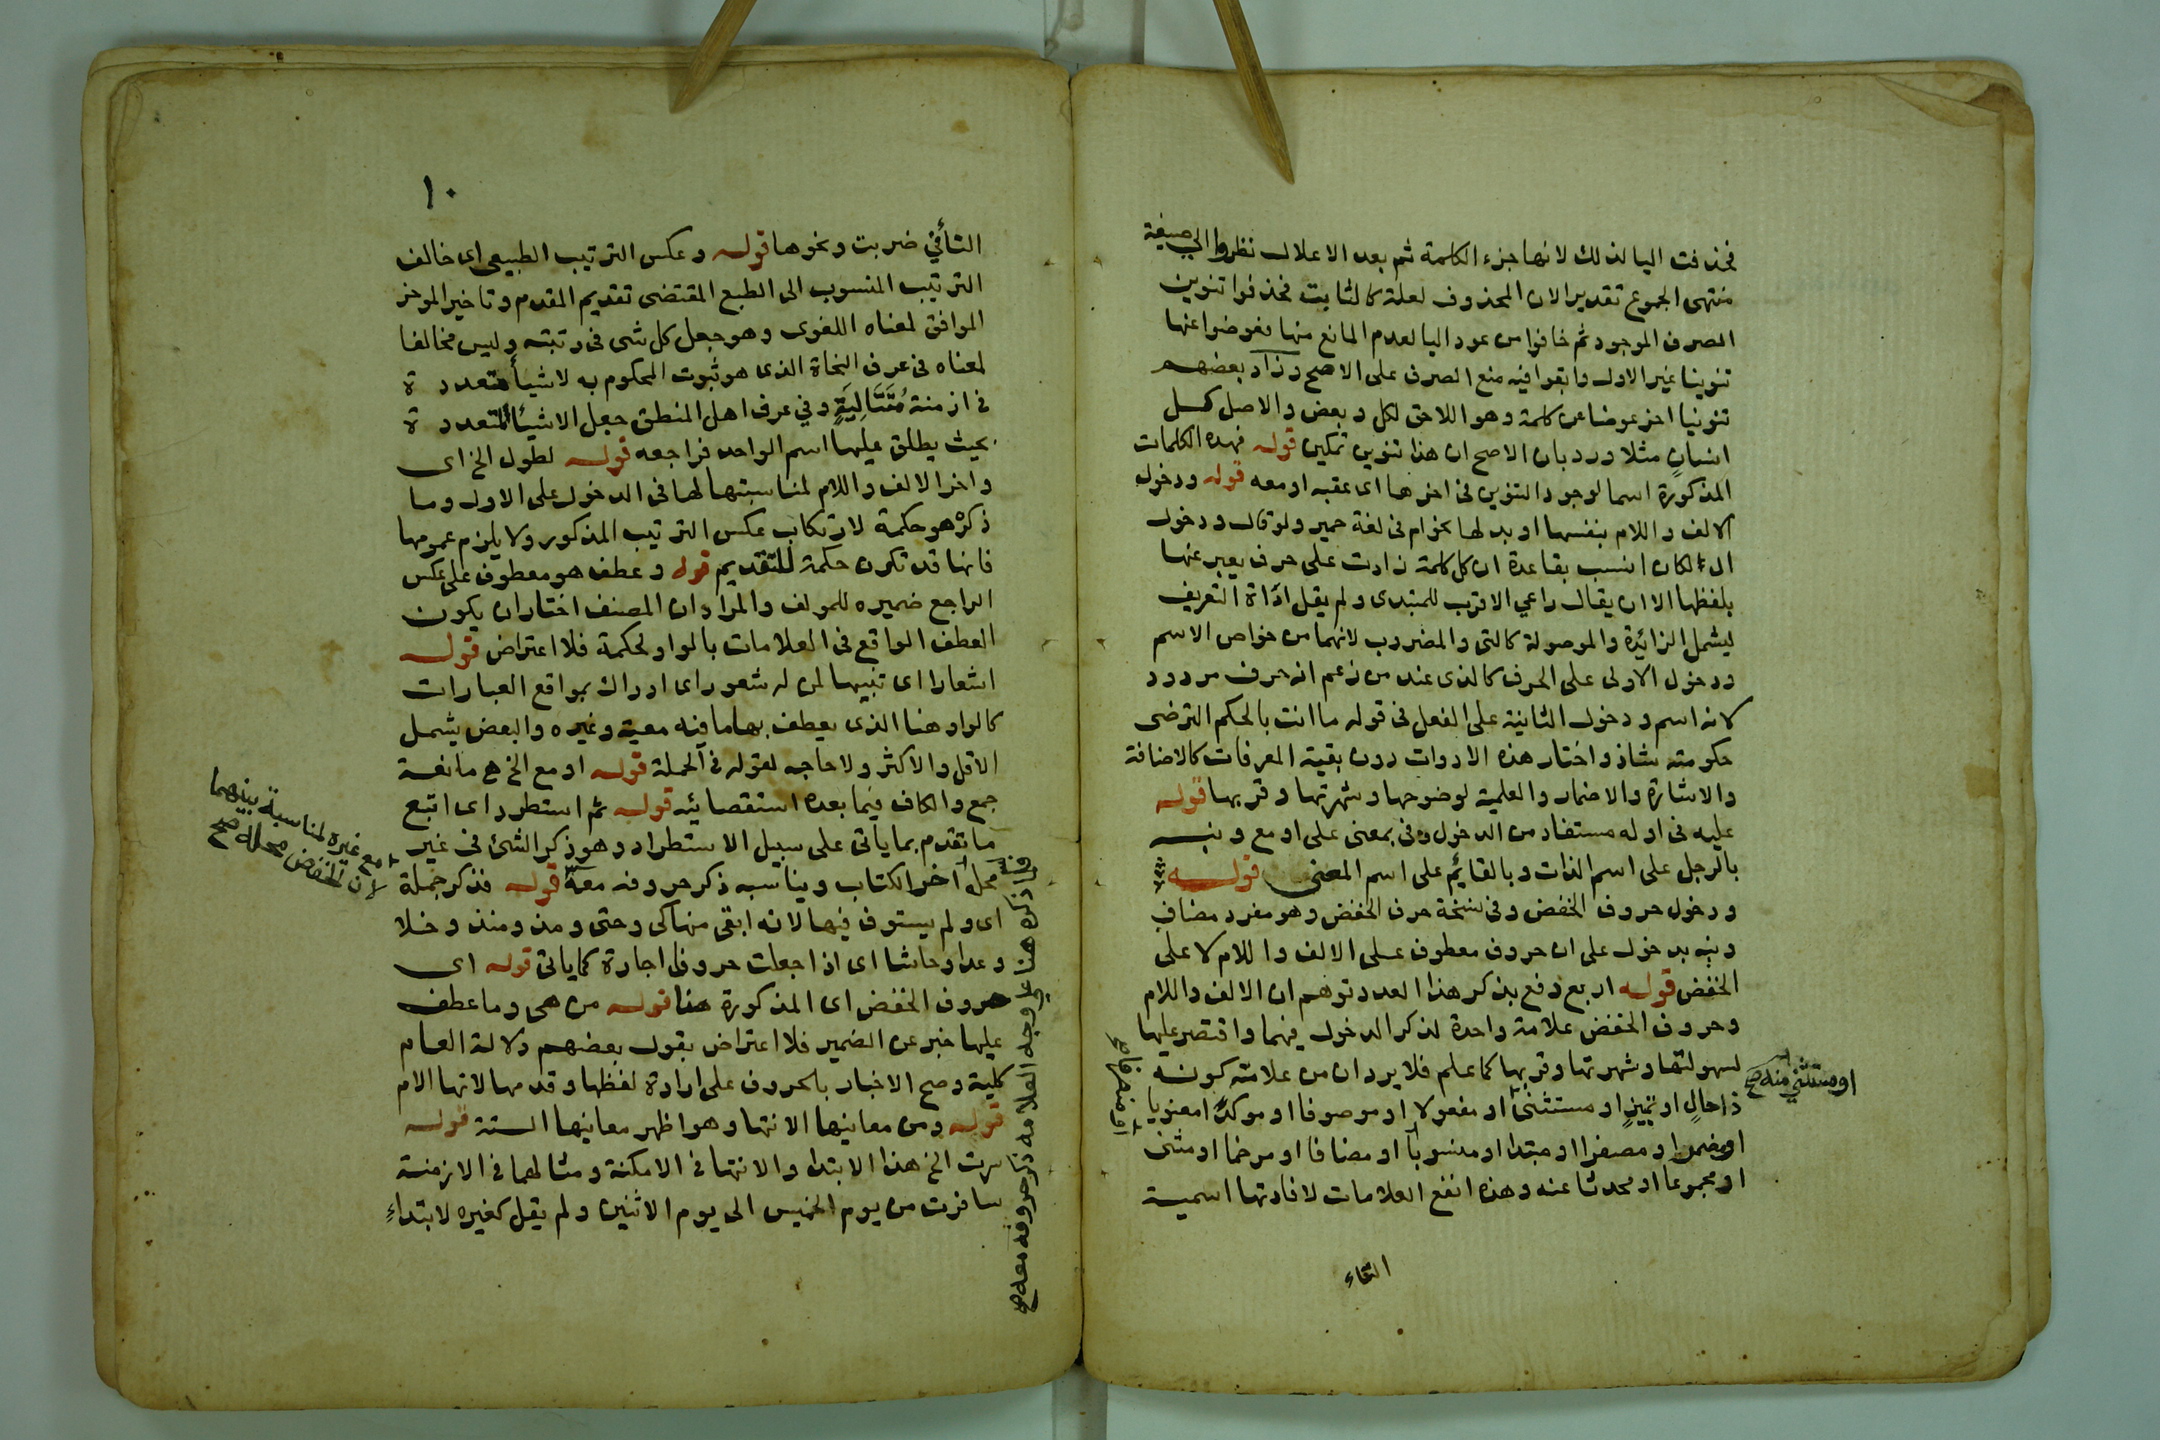 فحذفت اليا لذلك لانها جزء الكلمة ثم بعد الاعلال نظروا الى صيغة
منتهى الجموع تقديرا لان المحذوف لعلة كالثابت فحذفوا تنوين
الصرف الموجود ثم خافوا من عود اليا لعدم المانع منها فعوضوا عنها
تنوينا غير الاول وابقوا فيه منع الصرف على الاصح وزاد بعضهم
تنوينا اخر عوضا عن كلمة وهو اللاحق لكل وبعض والاصل كل
انسان مثلا ورد بان الاصح ان هذا تنوين تمكين قوله فهذه الكلمات
المذكورة اسما لوجود التنوين في اخرها اى عقبه او معه قوله ودخول
الالف واللام بنفسها او بدلها نحو ام في لغة حمير ولو قال ودخول
ال لكان انسب بقاعدة ان كل كلمة زادت على حرف يعبر عنها
بلفظها الا ان يقال راعي الاقرب للمبتدى ولم يقل اداة التعريف
ليشمل الزائدة والموصولة كالتى والمضروب لانهما من خواص الاسم
ودخول الاولى على الحرف كالذى عند من زعم انه حرف مردود
لانه اسم ودخول الثانية على الفعل في قوله ما انت بالحكم الترضى
حكومته شاذ واختار هذه الادوات دون بقية المعرفات كالاضافة
والاشارة والاضمار والعلمية لوضوحها وشهرتها وقربها قوله
عليه في اوله مستفاد من الدخول وفى بمعنى على او مع ونبه
بالرجل على اسم الذات وبالقائم على اسم المعنى قوله
ودخول حروف الخفض وفى نسخة حرف الخفض وهو مفرد مضاف
ونبه بدخول على ان حروف معطوف على الالف واللام لا على
الخفض قوله اربع دفع بذكر هذا العدد توهم ان الالف واللام
وحروف الخفض علامة واحدة لذكر الدخول فيهما واقتصر عليها
لسهولتها وشهرتها وقربها كما علم فلا يرد ان من علامته كونه
ذا حال او تمييز او مستثنى او مفعولا او موصوفا او موكدا معنويا
او مضمرا او مصغرا او مبتدا او منسوبا او مضافا او مرخما او مثنى
او مجموعا او محدثا عنه وهذه انفع العلامات لافادتها اسمية
او مستثنى منه صح
التاء
١٠
التاء في ضربت ونحوها قوله وعكس الترتيب الطبيعى اى خالف
الترتيب المنسوب الى الطبع المقتضى تقديم المقدم وتاخير الموخر
الموافق لمعناه اللغوى وهو جعل كل شى فى رتبته وليس مخالفا
لمعناه فى عرف النحاة الذى هو ثبوت المحكوم به لاشيأ متعددة
فى ازمنة مُتَتَالِيَةٍ وفي عرف اهل المنطق جعل الاشيأ المتعددة
بحيث يطلق عليها اسم الواحد فراجعه قوله لطول الخ اى
واخر الالف واللام لمناسبتها لها فى الدخول على الاول وما
ذكره هو حكمة لارتكاب عكس الترتيب المذكور ولا يلزم عمومها
فانها قد تكون حكمة للتقديم قوله وعطف هو معطوف على عكس
الراجع ضميره للمولف والمراد ان المصنف اختار ان يكون
العطف الواقع فى العلامات بالواو لحكمة فلا اعتراض قوله
اشعارا اى تنبيها لمن له شعور اى ادراك بمواقع العبارات
كالواو هنا الذى يعطف بها ما فيه معية وغيره والبعض يشمل
الاقل والاكثر ولا حاجه لقوله فى الجملة قوله او مع الخ هى مانعة
جمع والكاف فيما بعده استقصائيه قوله ثم استطرد اى اتبع
ما تقدم بما ياتى على سبيل الاستطراد وهو ذكر الشئ فى غير
محله اخر الكتاب ويناسبه ذكر حروفه معه قوله فذكر جملة
اى ولم يستوف فيها لانه ابقى منها كى وحتى ومذ ومنذ وخلا
وعدا وحاشا اى اذا جعلت حروفا جارة كما ياتى قوله اى
حروف الخفض اى المذكورة هنا قوله من هى وما عطف
عليها خبر عن الضمير فلا اعتراض بقول بعضهم دلالة العام
كلية وصح الاخبار بالحروف على ارادة لفظها وقدمها لانها الام
قوله ومن معانيها الانتها وهو اظهر معانيها الستة قوله
سرت الخ هذا الابتدا والانتها فى الامكنة ومثالهما فى الازمنة
سافرت من يوم الخميس الى يوم الاثنين ولم يقل كغيره لابتداء
مع غيره لمناسبة بينهما
لان الخفض محله صح
هنا على وجه العلامه ذكر حروفه معه صح